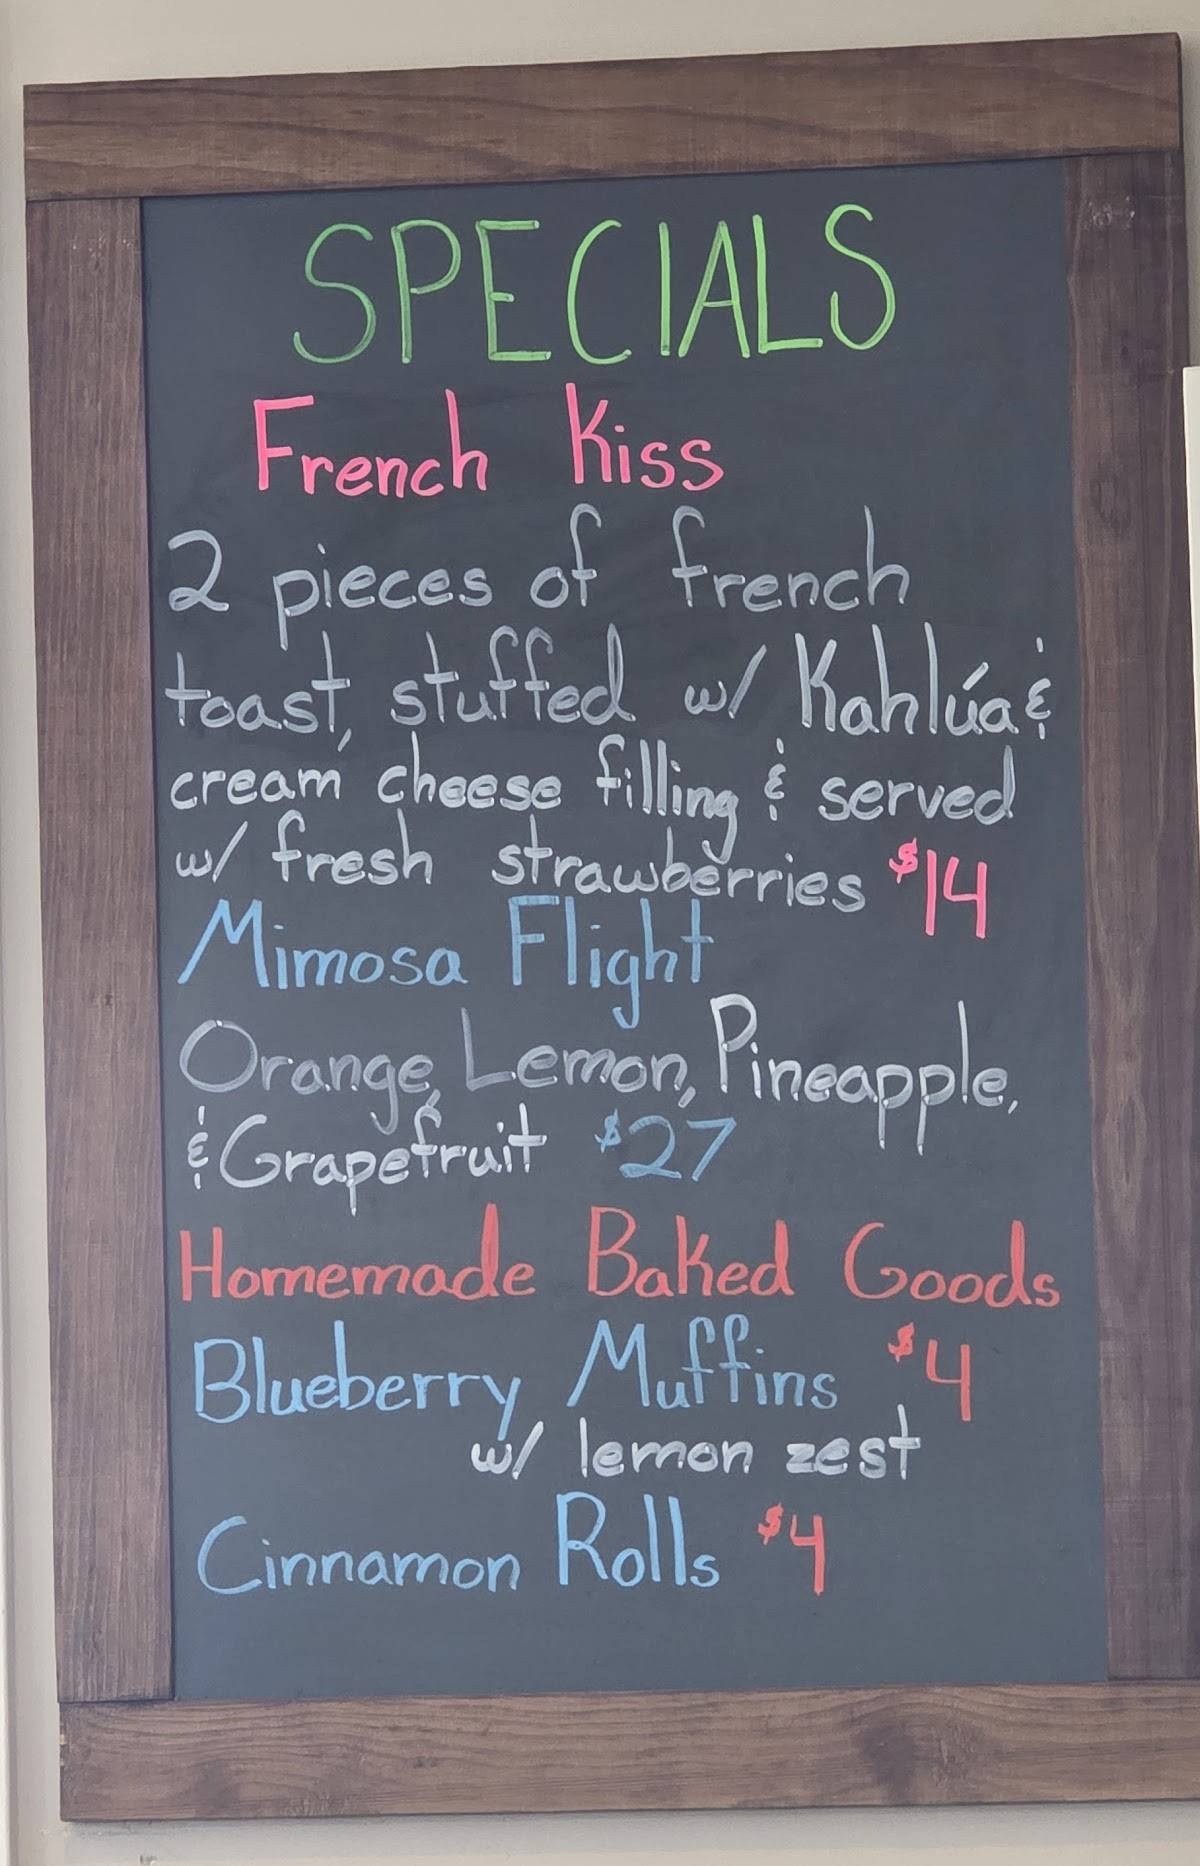 SPECIALS
French Kiss
2 pieces of french
toast, stuffed w/ Kahlúa &
cream cheese filling & served
w/ fresh strawberries $14
Mimosa Flight
Orange, Lemon, Pineapple,
& Grapefruit $27
Homemade Baked Goods
Blueberry Muffins $4
w/ lemon zest
Cinnamon Rolls $4